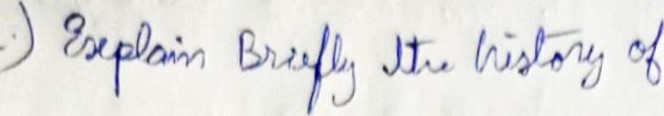 .) Explain Briefly the history of